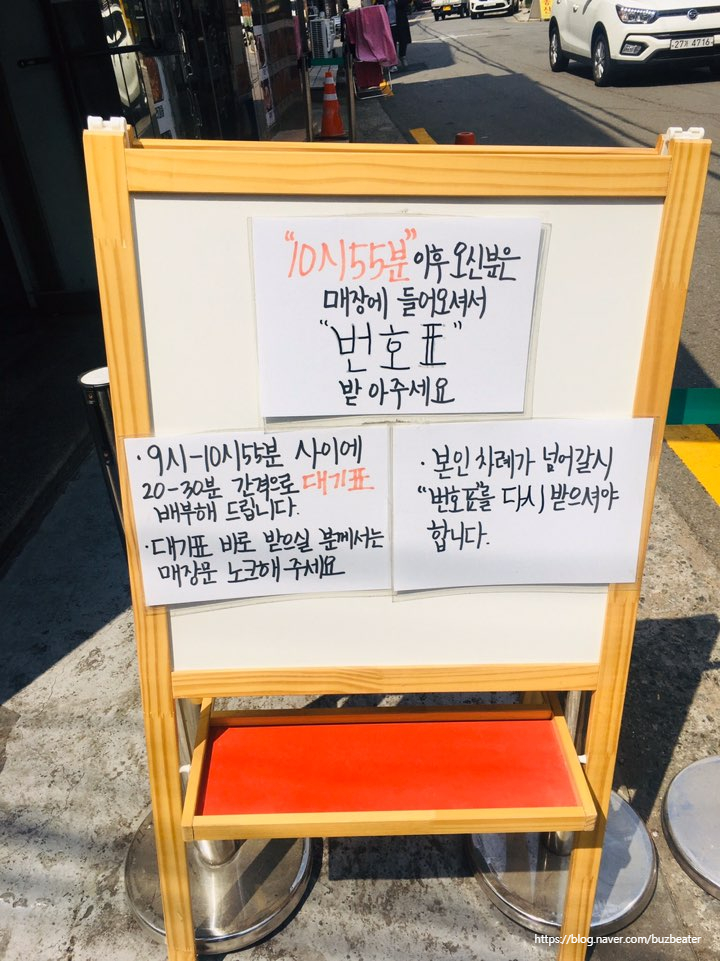 "10시55분" 이후 오신분은
매장에 들어오셔서
"번호표"
받아주세요
· 9시-10시55분 사이에
20-30분 간격으로 대기표
배부해 드립니다.
· 대기표 바로 받으실 분께서는
매장문 노크해 주세요
· 본인 차례가 넘어갈시
"번호표"를 다시 받으셔야
합니다.
https://blog.naver.com/buzbeater